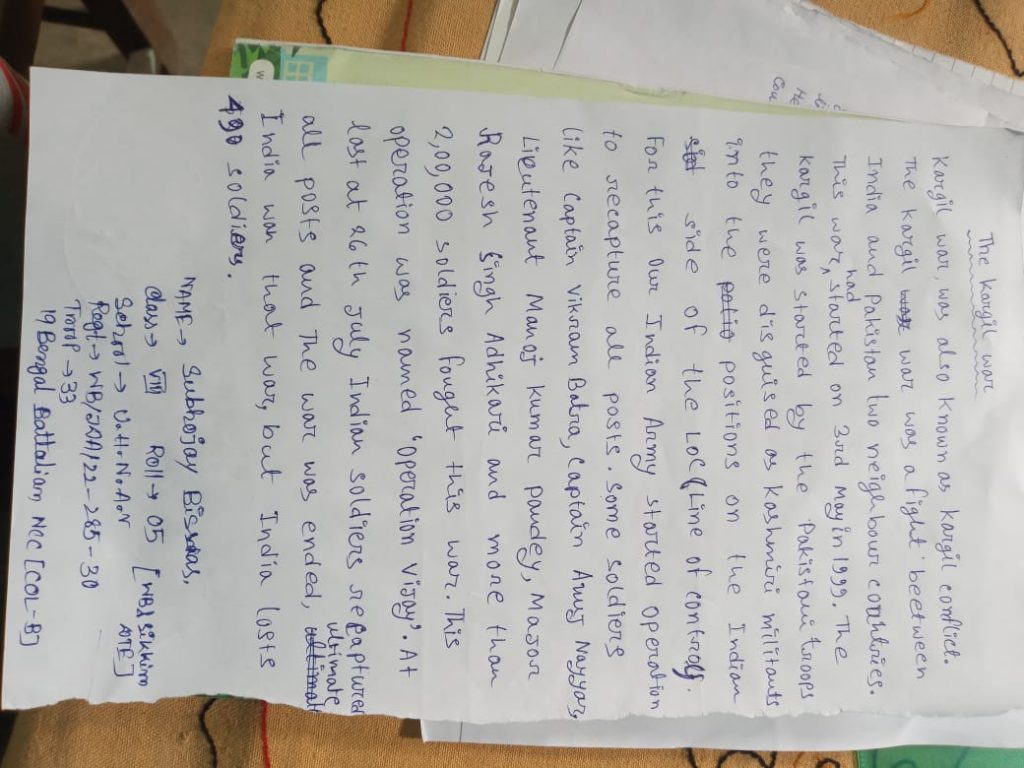 The Kargil war
Kargil war, was also known as kargil conflict.
The Kargil war was a fight beetween
India and Pakistan two neighbour countries.
This war, had started on 3rd May in 1999. The
kargil was started by the Pakistani troops
they were disguised as kashmiri militants
into the positions on the Indian
side of the LOC (Line of control).
For this Our Indian Army started operation
to recapture all posts. Some soldiers
like Captain Vikram Batra, Captain Anuj Nayyar,
Lieutenant Manoj Kumar pandey, Major
Rajesh Singh Adhikari and more than
2,00,000 soldiers fought this war. This
operation was named 'Operation Vijay'. At
last at 26th July Indian soldiers recaptured
all posts and The war was ended, ultimate
India won that war, but India losts
490 soldiers.
NAME → Subhojay Biswas.
Class → VIII Roll → 05 [WB & Sikkim
School → U.H.N.A.N DTE]
Regt → WB/22-285-30
Troop → 33
19 Bengal Battalian, NCC [COL-B]
W